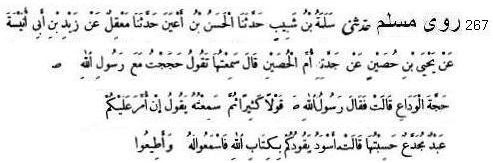 267 روى مسلم حدثنى سَلَمَةُ بْنُ شَبِيبٍ حَدَّثَنَا الْحَسَنُ بْنُ أَعْيَنَ حَدَّثَنَا مَعْقِلٌ عَنْ زَيْدِ بْنِ أَبِى أُنَيْسَةَ
عَنْ يَحْيَى بْنِ حُصَيْنٍ عَنْ جَدَّتِهِ أُمِّ الْحُصَيْنِ قَالَ سَمِعْتُهَا تَقُولُ حَجَجْتُ مَعَ رَسُولِ اللهِ ص
حَجَّةَ الْوَدَاعِ قَالَتْ فَقَالَ رَسُولُ اللهِ ص قَوْلًا كَثِيرًا ثُمَّ سَمِعْتُهُ يَقُولُ إِنْ أُمِّرَ عَلَيْكُمْ
عَبْدٌ مُجَدَّعٌ حَسِبْتُهَا قَالَتْ أَسْوَدُ يَقُودُكُمْ بِكِتَابِ اللهِ فَاسْمَعُوا لَهُ وَأَطِيعُوا